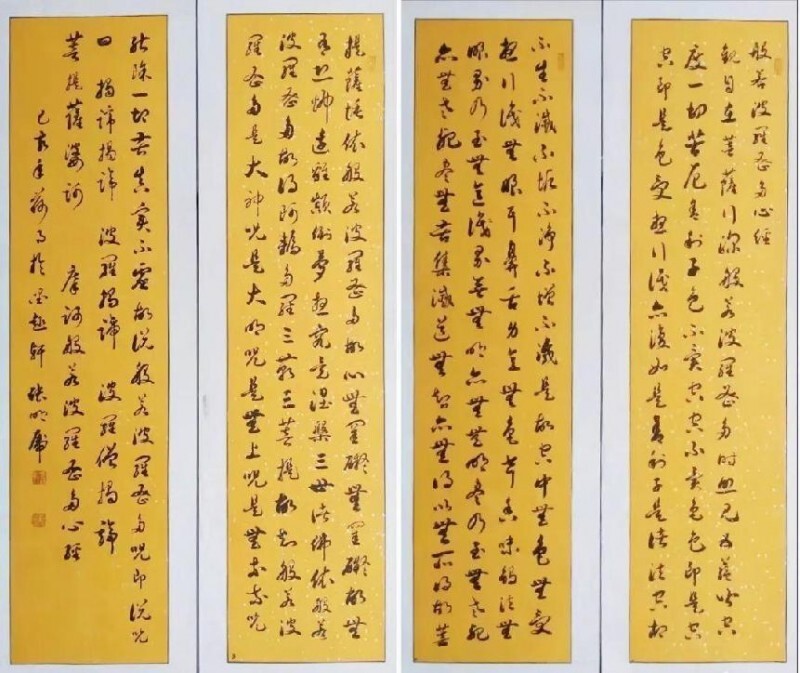 般若波羅蜜多心經
觀自在菩薩行深般若波羅蜜多時照見五蘊皆空
度一切苦厄舍利子色不異空空不異色色即是空
空即是色受想行識亦復如是舍利子是諸法空相
不生不滅不垢不淨不增不減是故空中無色無受
想行識無眼耳鼻舌身意無色聲香味觸法無
眼界乃至無意識界無無明亦無無明盡乃至無老死
亦無老死盡無苦集滅道無智亦無得以無所得故菩
提薩埵依般若波羅蜜多故心無罣礙無罣礙故無
有恐怖遠離顛倒夢想究竟涅槃三世諸佛依般若
波羅蜜多故得阿耨多羅三藐三菩提故知般若波
羅蜜多是大神咒是大明咒是無上咒是無等等咒
能除一切苦真實不虛故說般若波羅蜜多咒即說咒
曰 揭諦揭諦 波羅揭諦 波羅僧揭諦
菩提薩婆訶 摩訶般若波羅蜜多心經
己亥年荷月於墨趣軒 張明虎